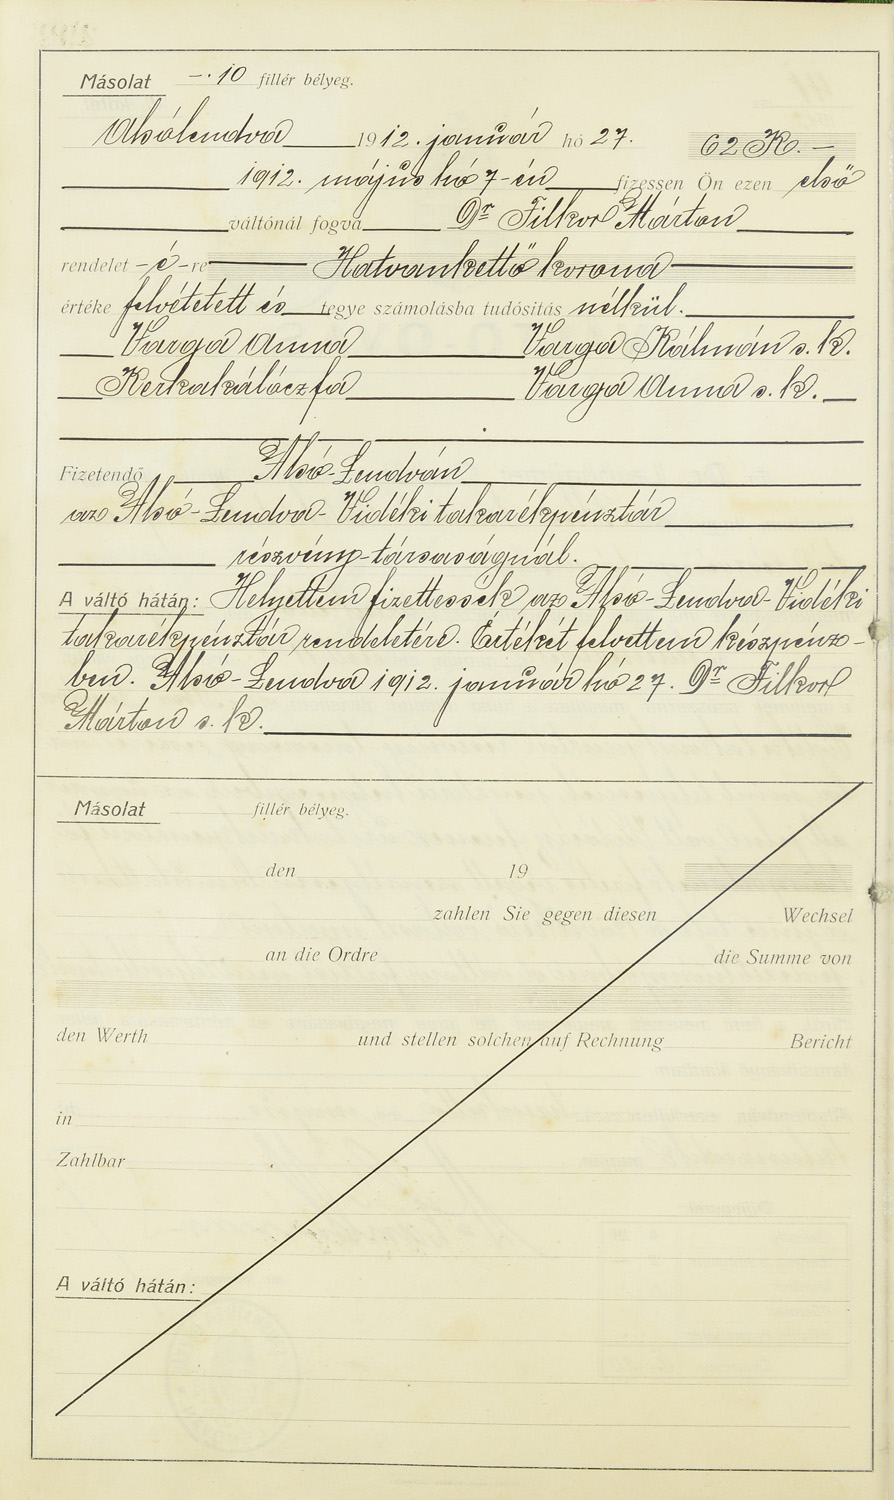 Másolat –·10 fillér bélyeg.
Alsólendva 1912. január hó 27. 62 K. –
1912. május hó 7-én fizessen Ön ezen első
váltónál fogva Dr Filkor Márton
rendelet -é-re Hatvankettő korona
értéke felvétetett és tegye számolásba tudósitás nélkül.
Varga Anna Varga Kálmán s. k.
Kerkakálóczfa Varga Anna s. k.
Fizetendő Alsó-Lendván
az Alsó-Lendva-Vidéki takarékpénztár
részvény-társaságnál.
A váltó hátán: Helyettem fizettessék az Alsó-Lendva-Vidéki
takarékpénztár rendeletére. Értékét felvettem készpénz-
ben. Alsó-Lendva 1912. január hó 27. Dr Filkor
Márton s. k.
Másolat fillér bélyeg.
den 19
zahlen Sie gegen diesen Wechsel
an die Ordre die Summe von
den Werth und stellen solchen auf Rechnung Bericht
in
Zahlbar
A váltó hátán: